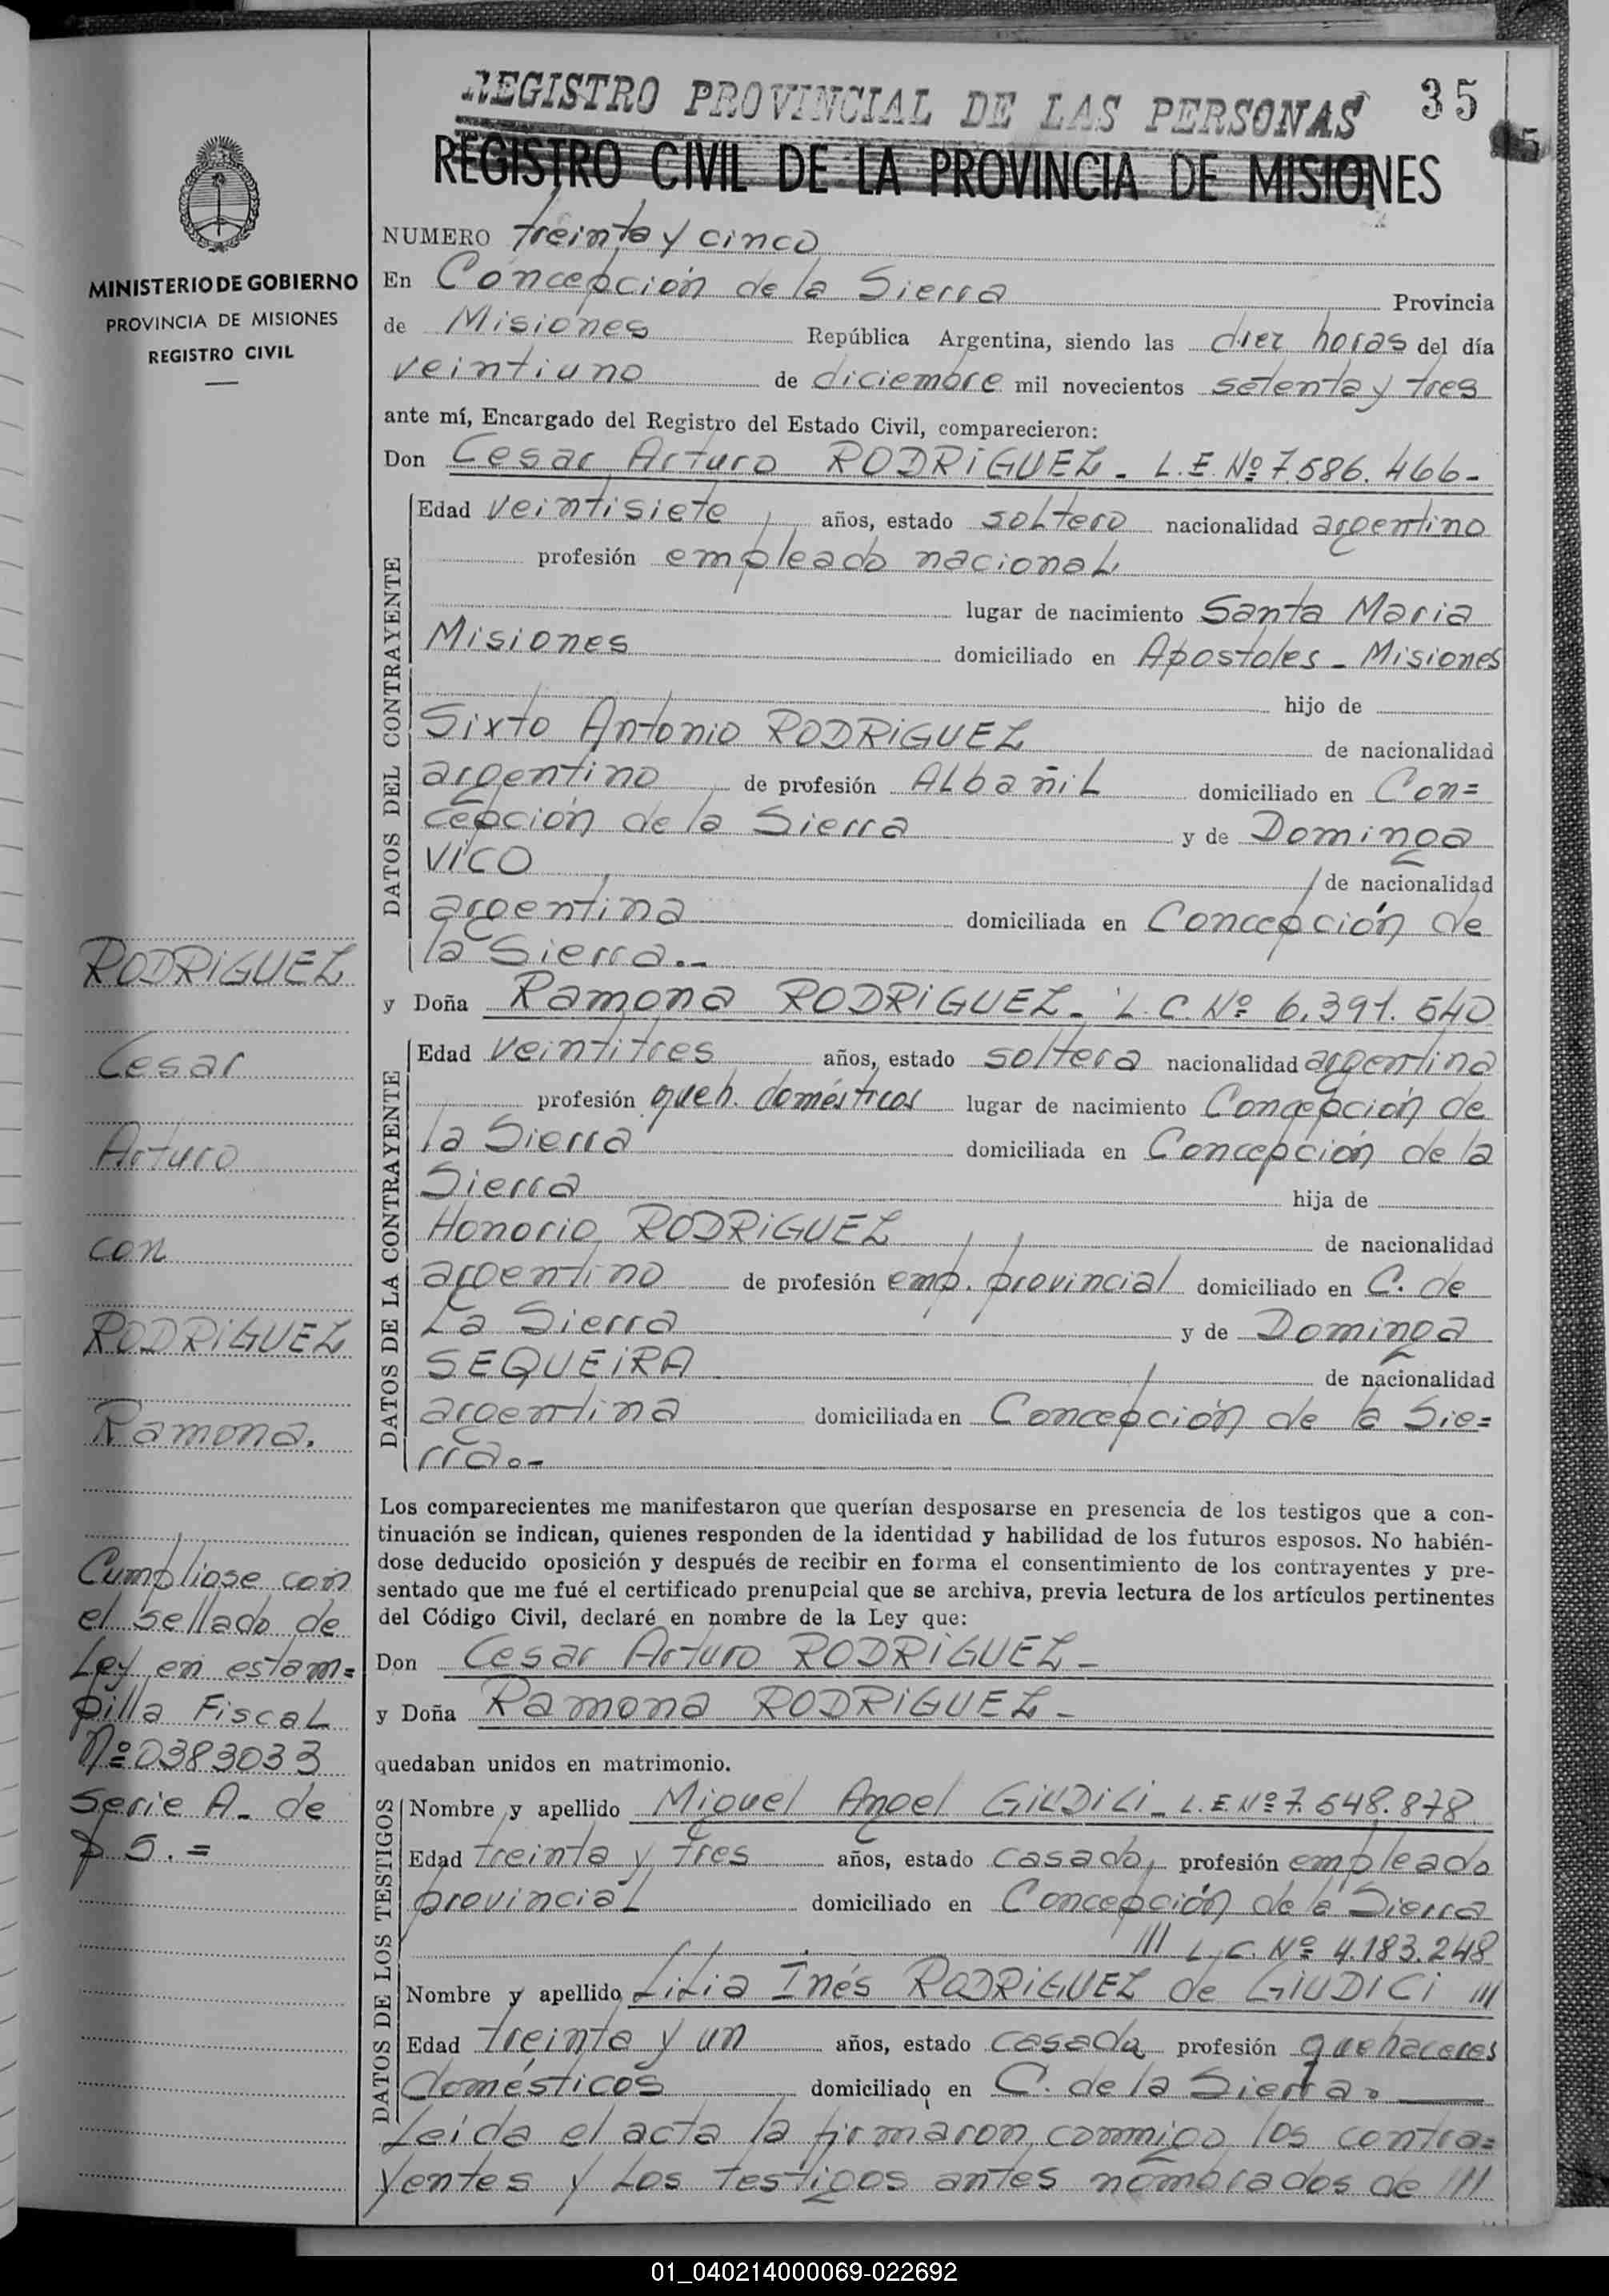 REGISTRO PROVINCIAL DE LAS PERSONAS
35
REGISTRO CIVIL DE LA PROVINCIA DE MISIONES
MINISTERIO DE GOBIERNO
PROVINCIA DE MISIONES
REGISTRO CIVIL
NUMERO treinta y cinco
En Concepción de la Sierra Provincia
de Misiones República Argentina, siendo las diez horas del día
veintiuno de diciembre mil novecientos setenta y tres
ante mí, Encargado del Registro del Estado Civil, comparecieron:
Don Cesar Arturo RODRIGUEZ - L.E. Nº 7.586.466-
DATOS DEL CONTRAYENTE
Edad veintisiete años, estado soltero nacionalidad argentino
profesión empleado nacional
lugar de nacimiento Santa Maria
Misiones domiciliado en Apostoles - Misiones
hijo de
Sixto Antonio RODRIGUEZ de nacionalidad
argentino de profesión Albañil domiciliado en Con=
cepción de la Sierra y de Dominga
VICO de nacionalidad
argentina domiciliada en Concepción de
la Sierra.-
y Doña Ramona RODRIGUEZ - L.C. Nº 6.391.540
DATOS DE LA CONTRAYENTE
Edad veintitres años, estado soltera nacionalidad argentina
profesión queh. domésticos lugar de nacimiento Concepción de
la Sierra domiciliada en Concepción de la
Sierra hija de
Honorio RODRIGUEZ de nacionalidad
argentino de profesión emp. provincial domiciliado en C. de
La Sierra y de Dominga
SEQUEIRA de nacionalidad
argentina domiciliada en Concepción de la Sie=
rra.-
Los comparecientes me manifestaron que querían desposarse en presencia de los testigos que a con-
tinuación se indican, quienes responden de la identidad y habilidad de los futuros esposos. No habién-
dose deducido oposición y después de recibir en forma el consentimiento de los contrayentes y pre-
sentado que me fué el certificado prenupcial que se archiva, previa lectura de los artículos pertinentes
del Código Civil, declaré en nombre de la Ley que:
Don Cesar Arturo RODRIGUEZ -
y Doña Ramona RODRIGUEZ -
quedaban unidos en matrimonio.
DATOS DE LOS TESTIGOS
Nombre y apellido Miguel Angel GIUDICI - L.E. Nº 7.548.878
Edad treinta y tres años, estado casado, profesión empleado
provincial domiciliado en Concepción de la Sierra
/// L.C. Nº 4.183.248
Nombre y apellido Lilia Inés RODRIGUEZ de GIUDICI ///
Edad treinta y un años, estado casada profesión quehaceres
domésticos domiciliado en C. de la Sierra.
Leída el acta la firmaron conmigo los contra=
yentes y los testigos antes nombrados de ///
RODRIGUEZ
Cesar
Arturo
con
RODRIGUEZ
Ramona.
Cumpliose con
el sellado de
Ley en estam=
pilla Fiscal
Nº 0383033
serie A- de
$ 5.=
01_040214000069-022692